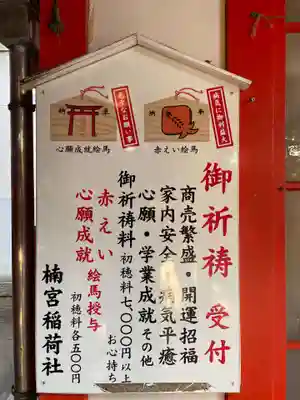 奉納
心願成就絵馬
病気に御利益大
奉納
赤えい絵馬
御祈祷 受付
商売繁盛・開運招福
家内安全・病気平癒
心願・学業成就 その他
御祈祷料 初穂料七、〇〇〇円以上
お心持ち
赤えい
心願成就 絵馬授与
初穂料各五〇〇円
楠宮稲荷社